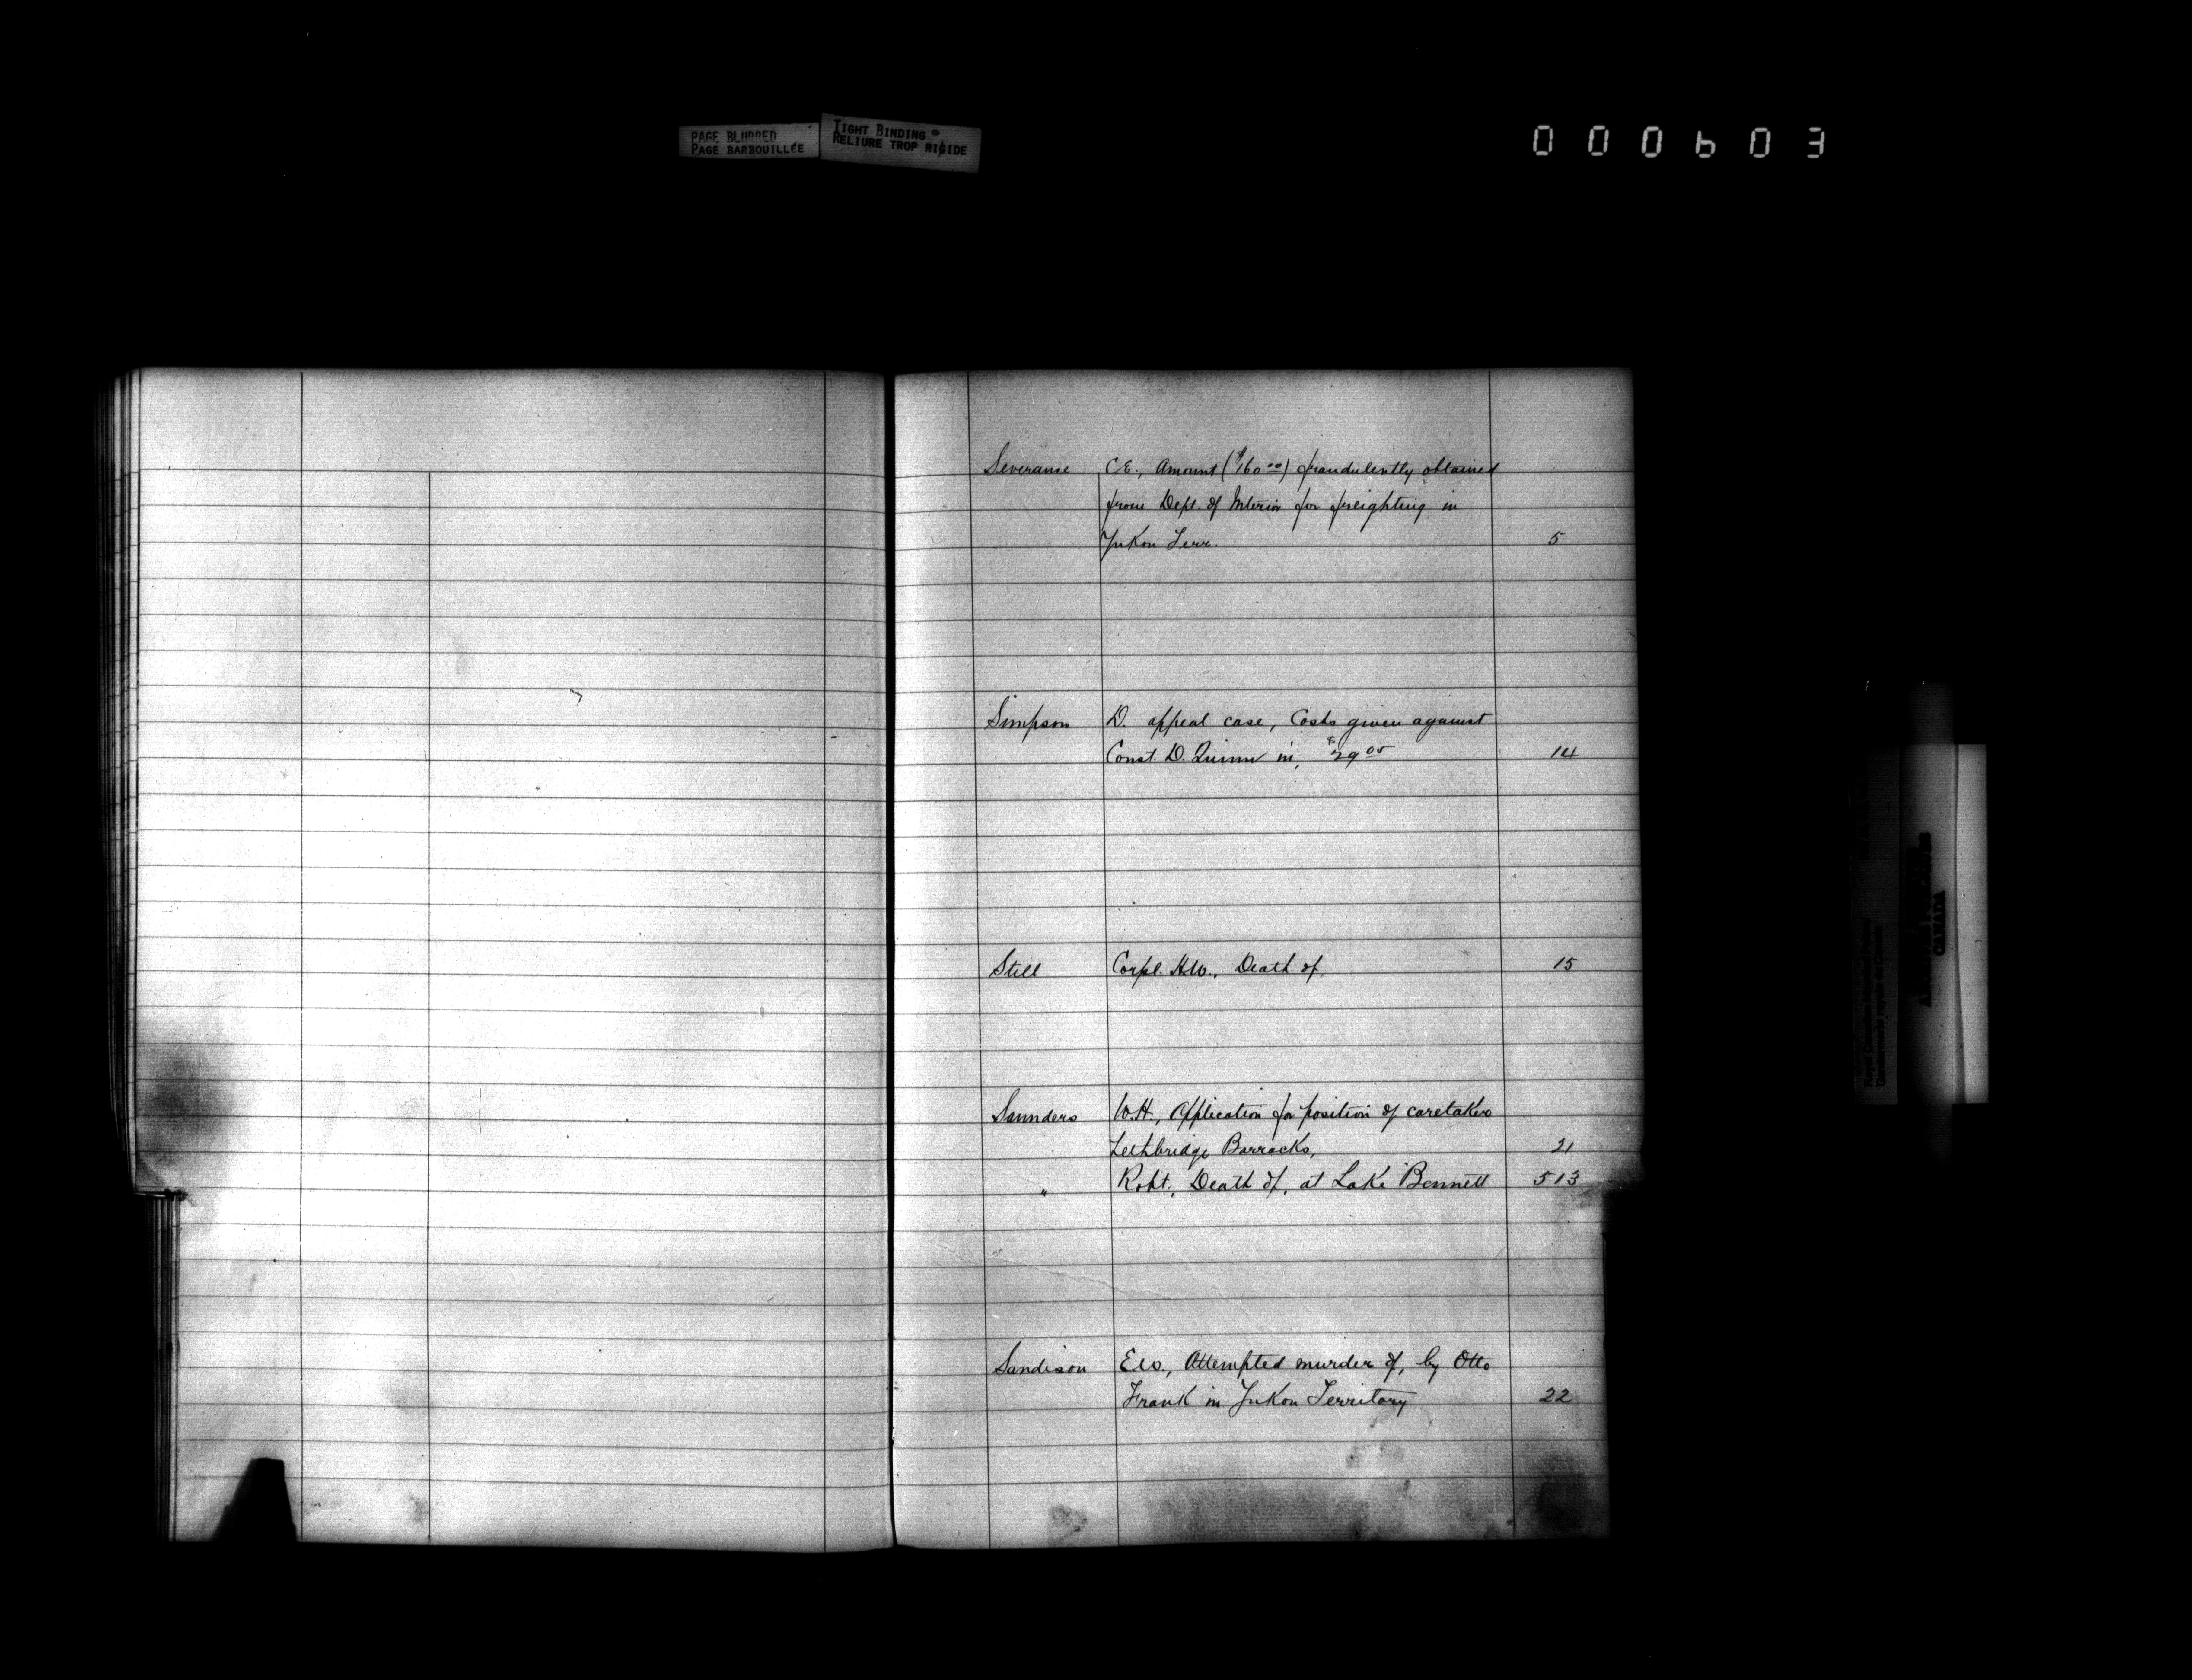 PAGE BLURRED
PAGE BARBOUILLÉE
TIGHT BINDING
RELIURE TROP RIGIDE
000603
Severance C.E., Amount ($160.00) fraudulently obtained
from Dept. of Interior for freighting in
Yukon Terr. 5
Simpson D. appeal case, Costs given against
Const. D. Quinn in, $29.05 14
Still Corpl. H.W., Death of, 15
Saunders W.H., Application for position of caretaker
Lethbridge Barracks, 21
" Robt., Death of, at Lake Bennett 513
Sandison E.W., Attempted murder of, by Otto
Frank in Yukon Territory 22